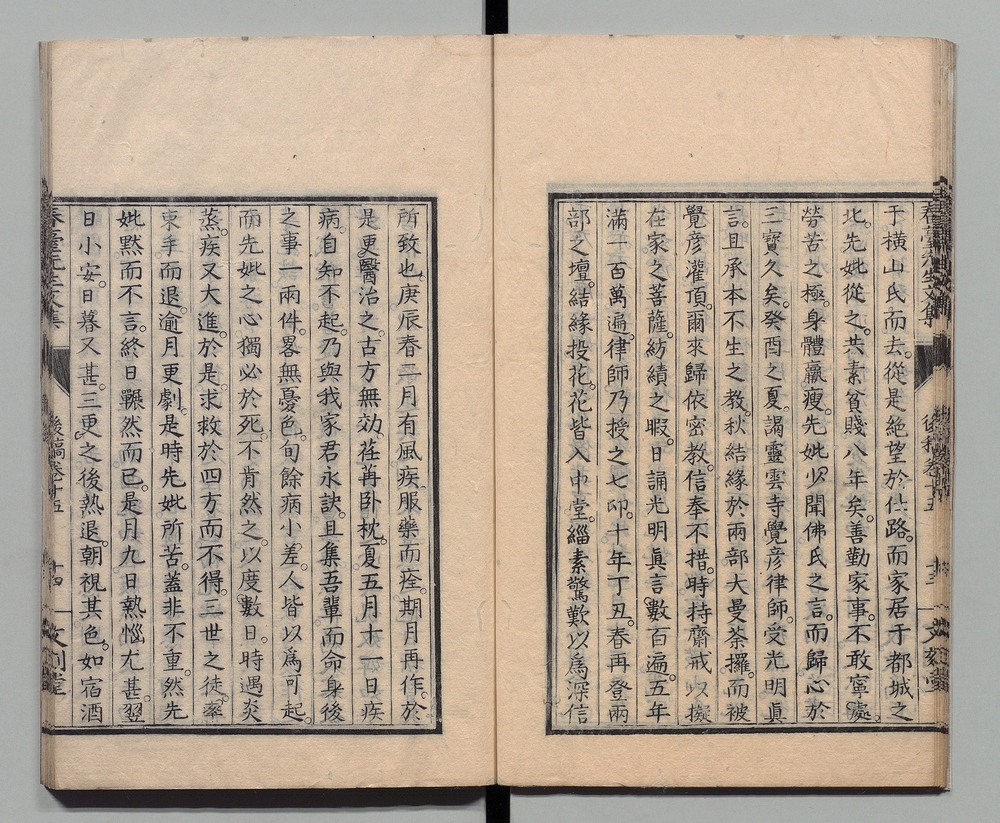 于橫山氏而去。從是絕望於仕路。而家居于都城之
北。先妣從之。共素貧賤八年矣。善勤家事。不敢寧處。
勞苦之極。身體羸瘦。先妣少聞佛氏之言。而歸心於
三寶久矣。癸酉之夏。謁靈雲寺覺彥律師。受光明眞
言。且承本不生之教。秋結緣於兩部大曼荼攞。而被
覺彥灌頂。爾來歸依密教。信奉不措。時持齋戒。以擬
在家之菩薩。紡績之暇。日誦光明眞言。數百遍。五年
滿一百萬遍。律師乃授之七印。十年丁丑。春再登兩
部之壇。結緣投花。花皆入中堂。緇素驚歎以爲深信
春臺先生文集
後稿卷十五
十三
文刻堂
所致也。庚辰春二月有風疾。服藥而痊。期月再作。於
是更醫治之。古方無効。荏苒臥枕。夏五月十一日疾
病。自知不起。乃與我家君永訣。且集吾輩而命身後
之事一兩件。畧無憂色。旬餘病小差。人皆以爲可起。
而先妣之心獨必於死。不肯然之。以度數日。時遇炎
蒸。疾又大進。於是求救於四方而不得。三世之徒。率
束手而退。逾月更劇。是時先妣所苦。蓋非不重。然先
妣默而不言。終日囅然而已。是月九日熱惱尤甚。翌
日小安。日暮又甚。三更之後熱退。朝視其色。如宿酒
春臺先生文集
後稿卷十五
十四
文刻堂